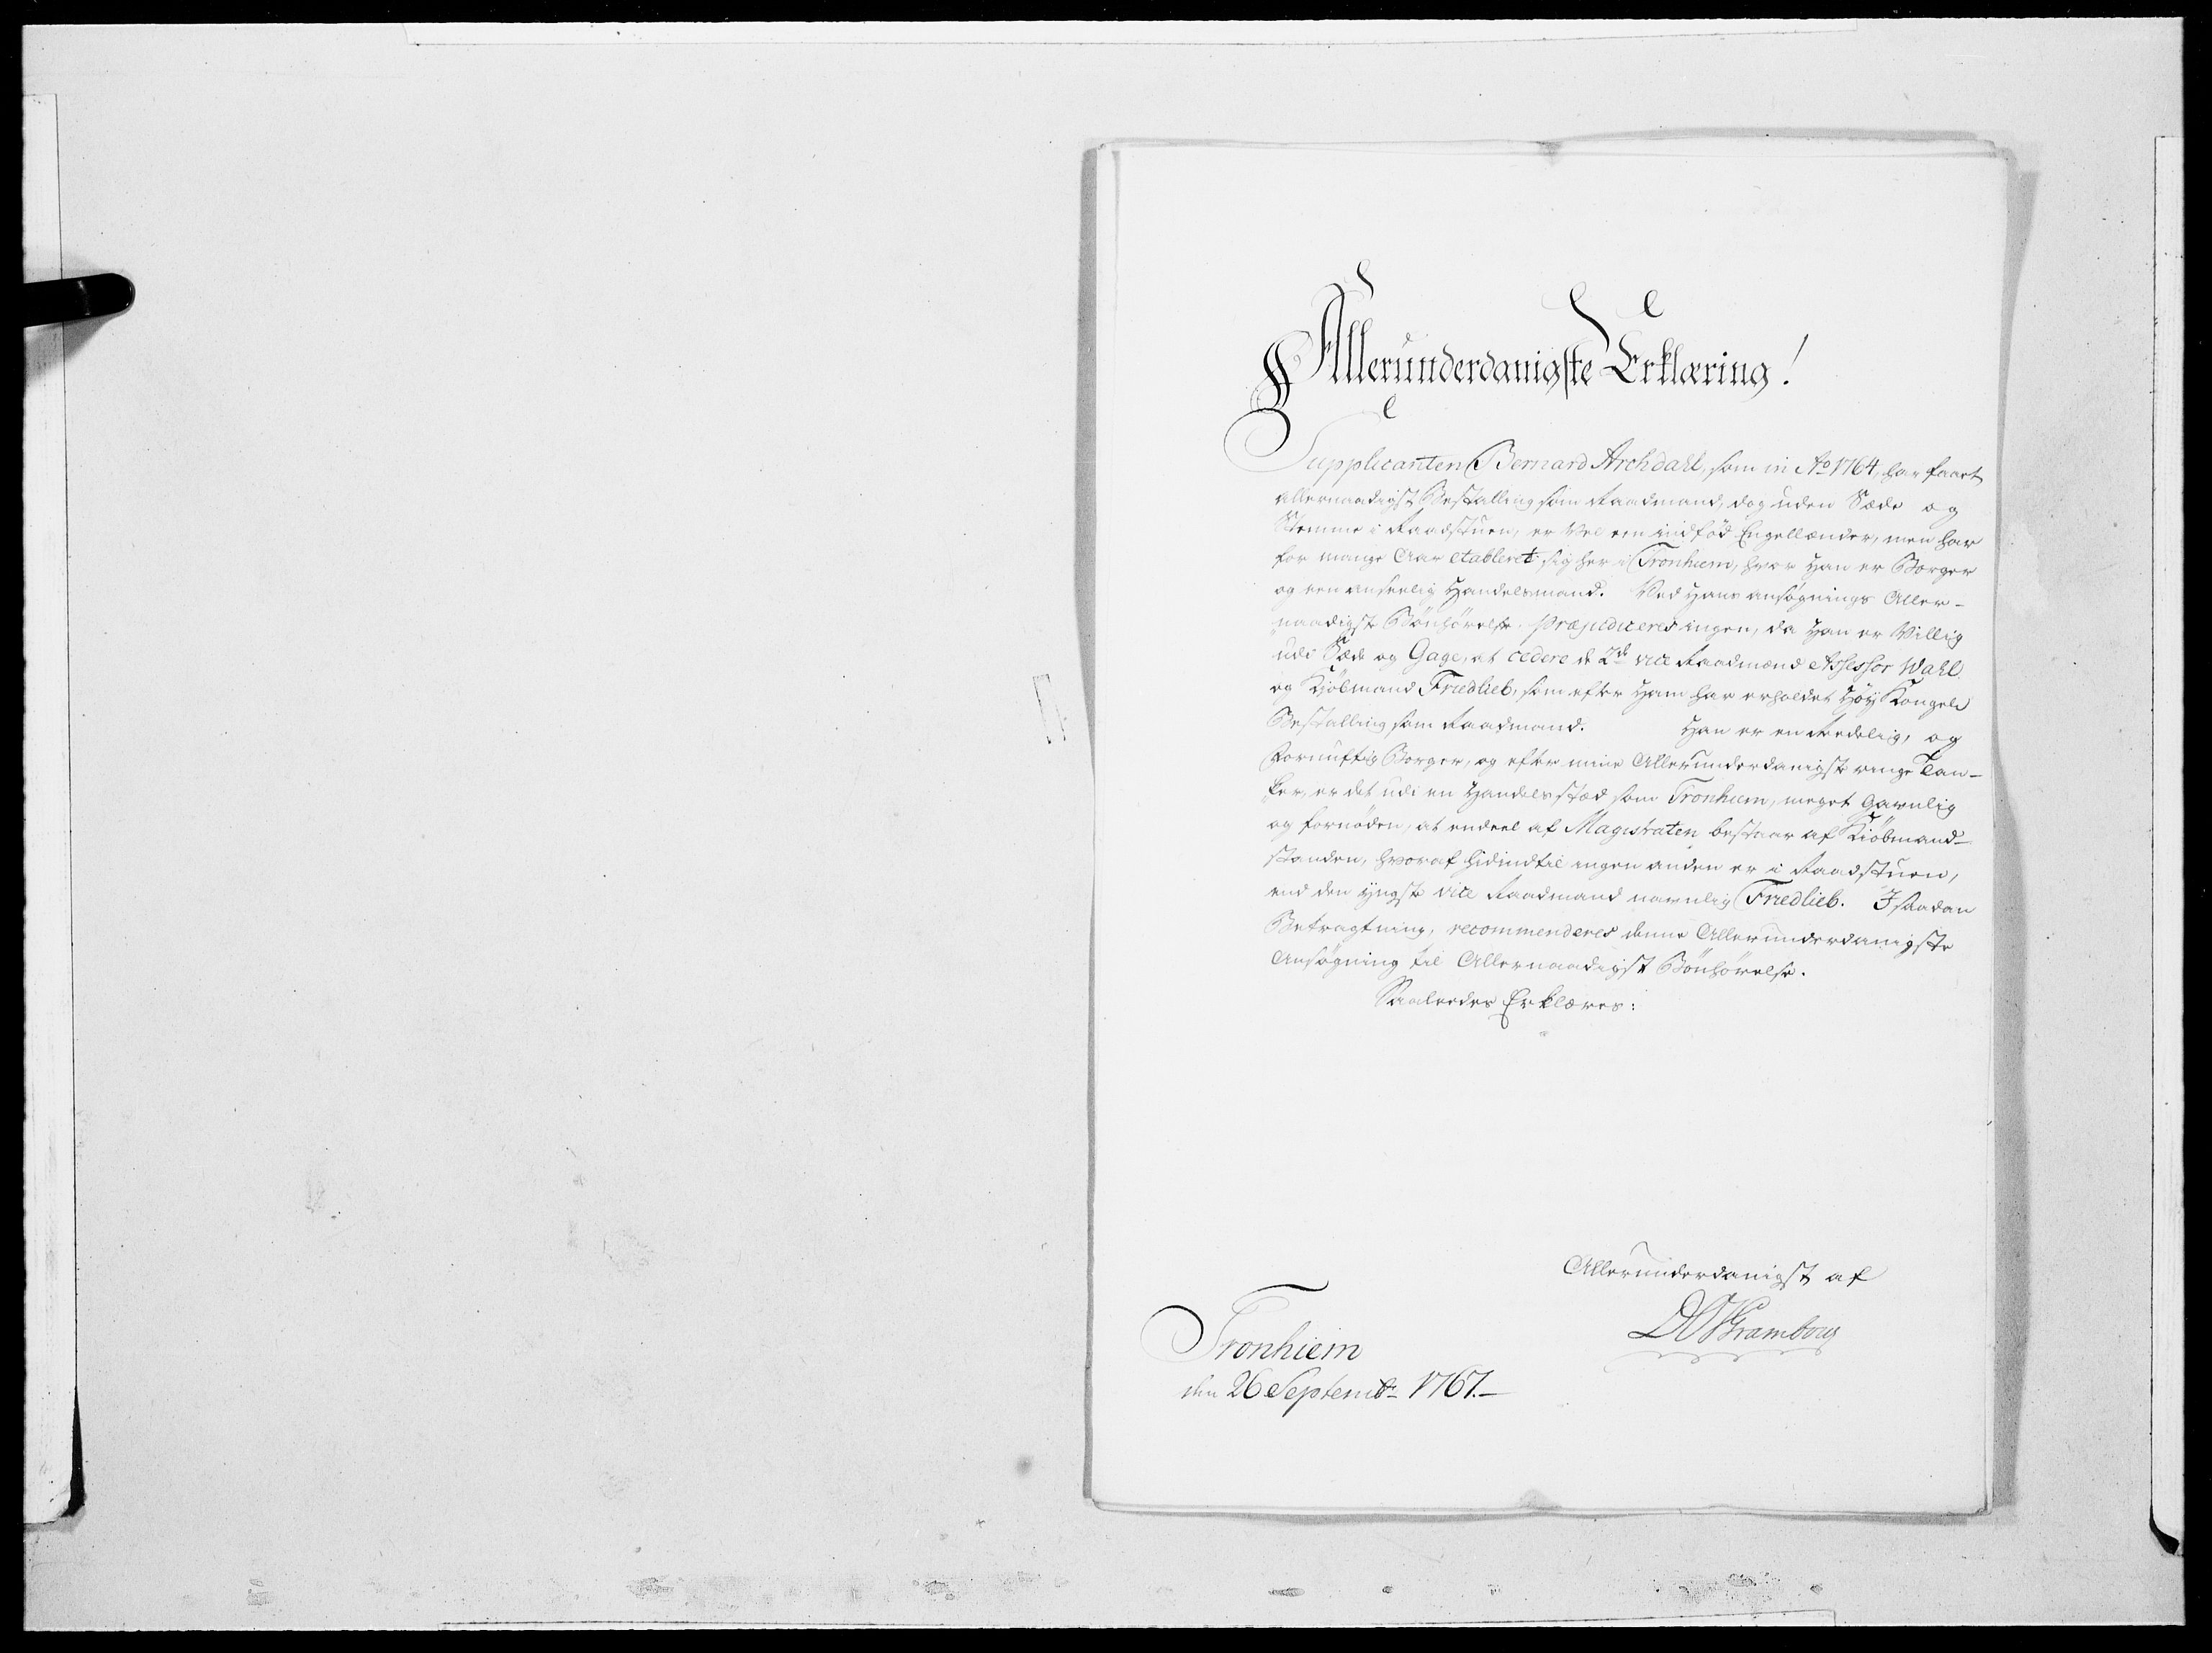 Allerunderdanigste Erklæring!
Supplicanten Bernard Archdahl, som in Ao 1764, har faaet
allernaadigst Bestalling som Raadmand, dog uden Sæde og
Stemme i Raadstuen, er vel een indfød Engellænder, men har
for mange Aar etableret sig her i Tronhiem, hvor Han er Borger
og een anseelig Handelsmand. Ved Hans ansøgnings Aller-
naadigste Bönhörelse præjudiceres ingen, da Han er Villig
udi Sæde og Gage, at cedere de 2de vice Raadmænd Assessor Wahl
og Kjöbmand Friedlieb, som efter Ham har erholdet Höy Kongel
Bestalling som Raadmand. Han er en Redelig, og
Fornuftig Borger, og efter mine Allerunderdanigste ringe Tan-
ker, er det udi en Handelsstæd som Tronhiem, meget Gavnlig
og fornöden, at endeel af Magistraten bestaar af Kiöbmand-
standen, hvoraf hidindtil ingen anden er i Raadstuen,
end den yngste vice Raadmand navnlig Friedlieb. I saadan
Betragtning, recommenderes denne Allerunderdanigste
Ansøgning til Allernaadigst Bönhörelse.
Saaledes Erklæres:
Allerunderdanigst af
Gramborg
Tronhiem
den 26 Septembr 1767.